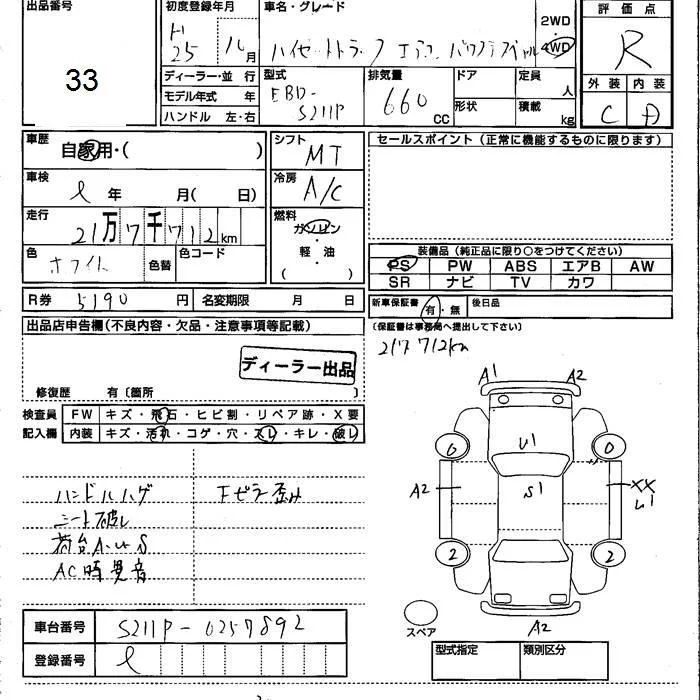 出品番号
33
初度登録年月
H
25 10月
車名・グレード
ハイゼットトラック エアコン パワステスペシャル
2WD
・
4WD
評価点
R
外装 内装
C D
ディーラー・並 行
モデル年式 年
ハンドル 左・右
型式
EBD-
S211P
排気量
660
CC
ドア
形状
定員
人
積載
kg
車歴
自家用・( )
車検
年 月( 日)
走行
21万7千712km
色
ホワイト
色替
色コード
シフト
MT
冷房
A/C
燃料
ガソリン
・
軽・油
( )
セールスポイント(正常に機能するものに限ります)
装備品(純正品に限り○をつけてください)
PS PW ABS エアB AW
SR ナビ TV カワ
R券 5190 円 名変期限 月 日
新車保証書 有・無 後日品
(保証書は事務局へ提出して下さい)
出品店申告欄(不良内容・欠品・注意事項等記載)
ディーラー出品
修復歴 有〔箇所 〕
217712km
検査員
記入欄
FW キズ・飛石・ヒビ割・リペア跡・X要
内装 キズ・汚れ・コゲ・穴・スレ・キレ・破レ
ハンドルハゲ Fピラー歪み
シート破レ
荷台A・U・S
AC時異音
A1 A2
U1
0 0
A2 S1 XX
U1
2 2
A2
スペア
車台番号 S211P-0257892
登録番号
型式指定 類別区分